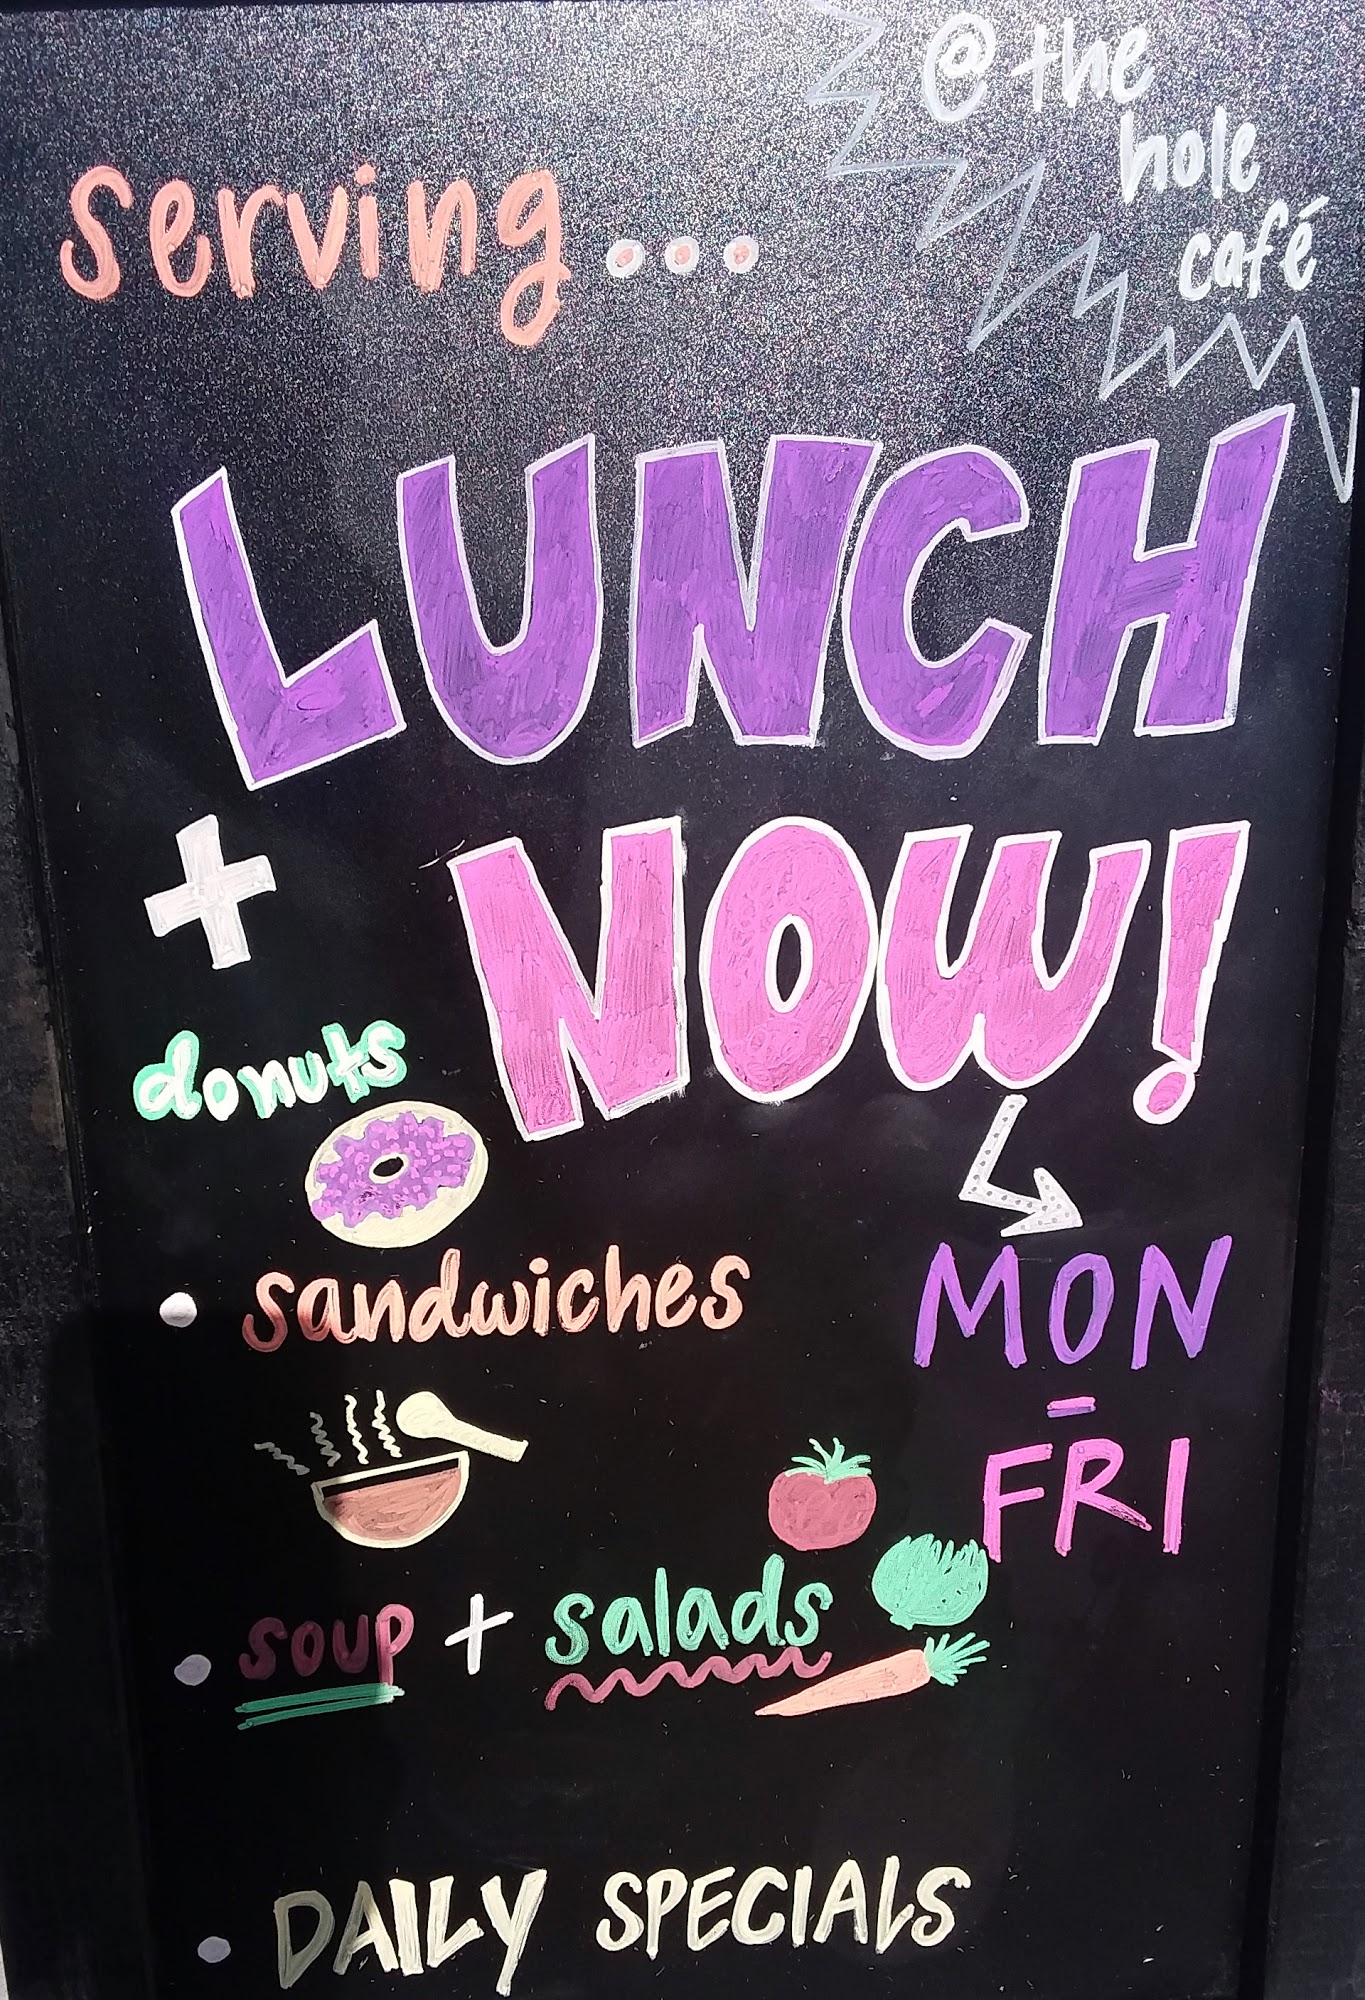 @ the
hole
café
serving...
LUNCH
+ NOW!
donuts
MON
-
FRI
• sandwiches
• soup + salads
• DAILY SPECIALS